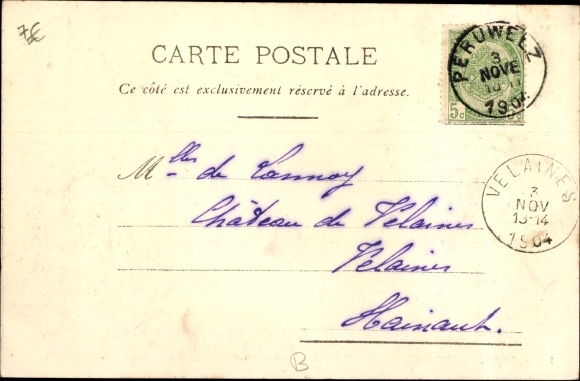 7€
CARTE POSTALE
Ce côté est exclusivement réservé à l'adresse.
PERUWELZ
3
NOVE
1904
5c
Mlles de Lannoy
Château de Velaines
Velaines
Hainaut.
VELAINES
3
NOV
13-14
1904
B